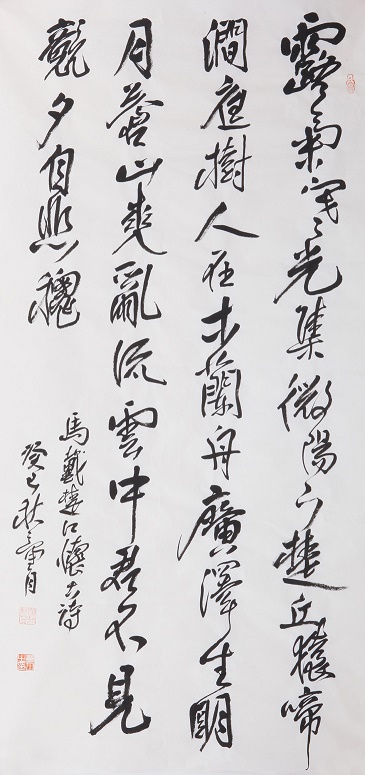 露氣寒光集微陽下楚丘猿啼
澗庭樹人在木蘭舟廣澤生明
月蒼山夾亂流雲中君不見
竸夕自悲穐
馬戴楚江懷古詩
癸巳秋月